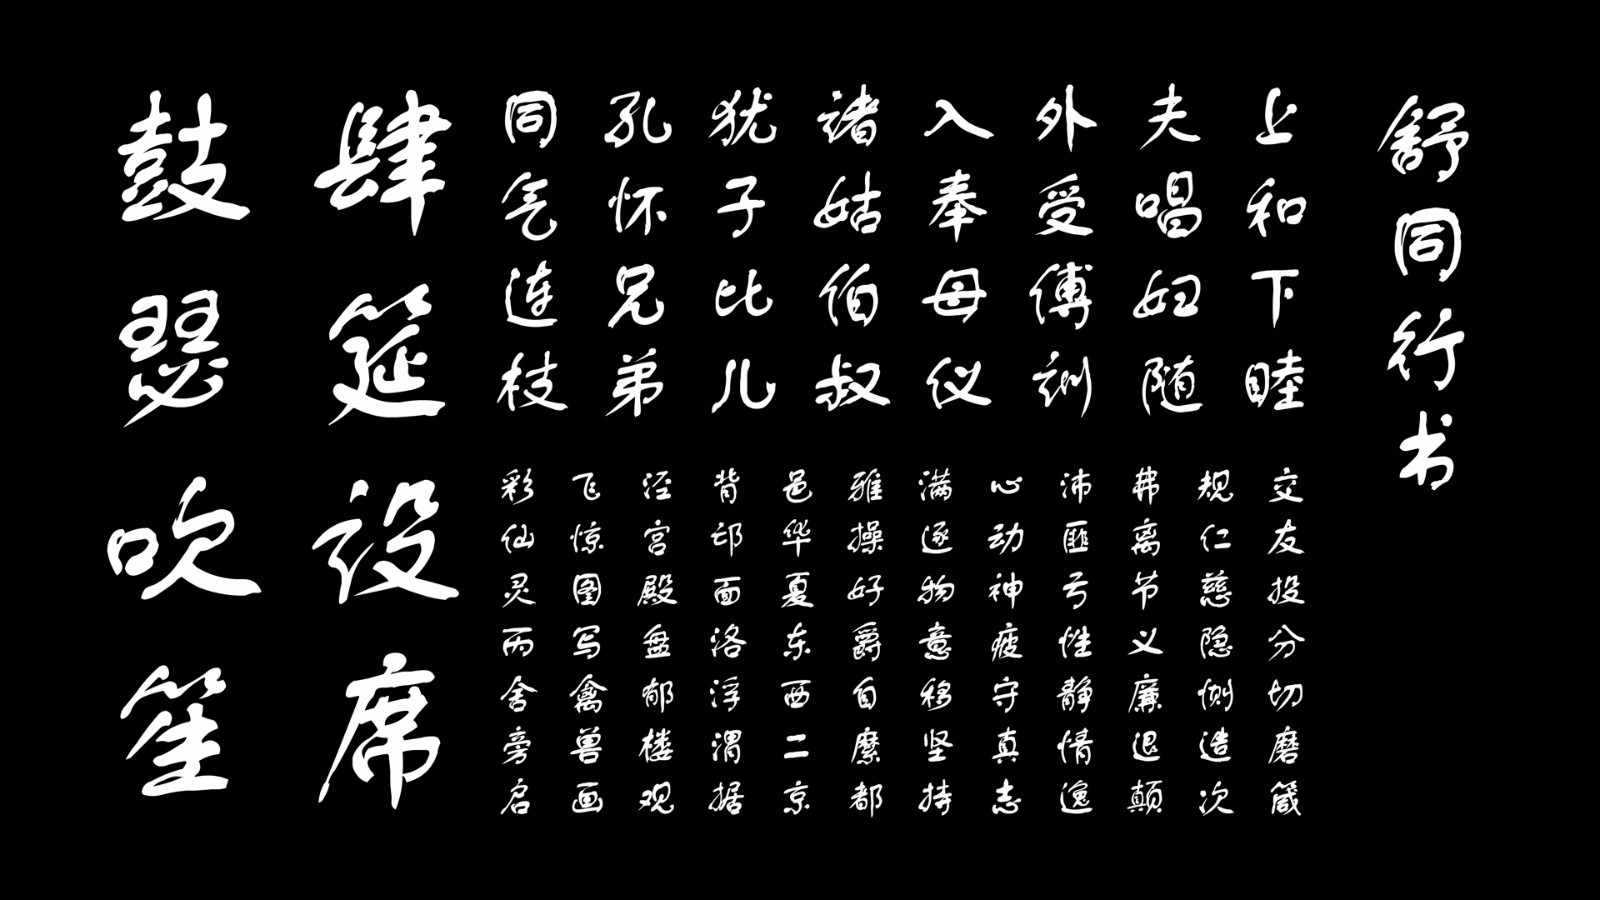 舒同行书
上和下睦
夫唱妇随
外受傅训
入奉母仪
诸姑伯叔
犹子比儿
孔怀兄弟
同气连枝
交友投分切磨箴
规仁慈隐恻造次
弗离节义廉退颠
沛匪亏性静情逸
心动神疲守真志
满逐物意移坚持
雅操好爵自縻都
邑华夏东西二京
背邙面洛浮渭据
泾宫殿郁盘楼观
飞惊图写禽兽画
彩仙灵丙舍旁启
肆筵设席
鼓瑟吹笙